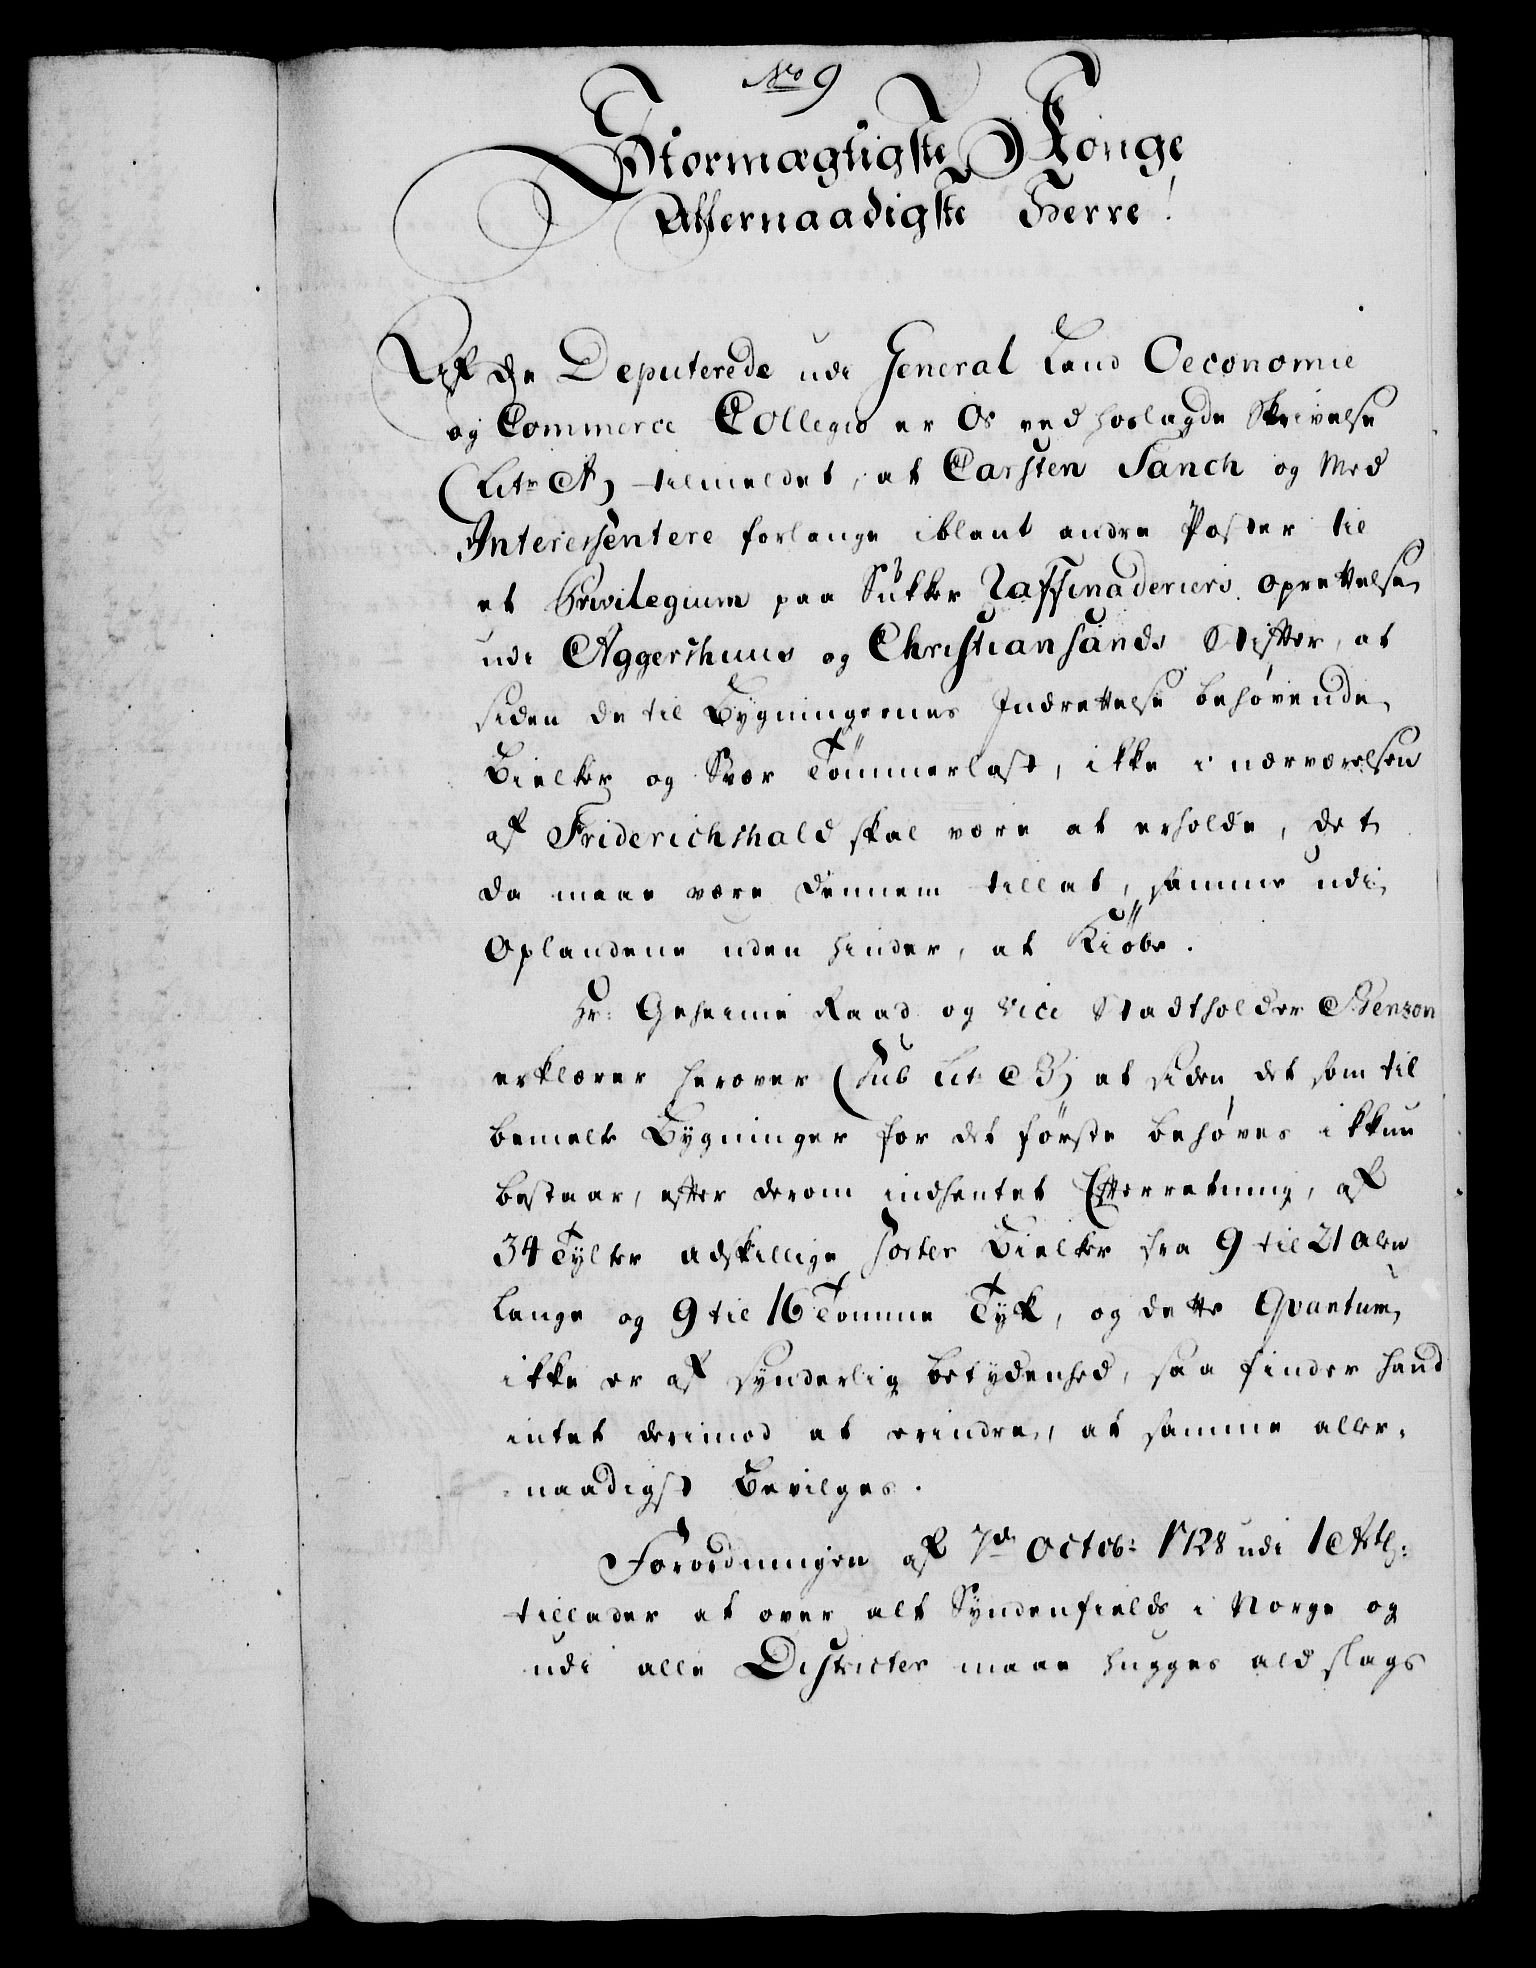 No 9
Stormægtigste Konge
Allernaadigste Herre!
Af de Deputerede udi General Land Oeconomie
og Commerce Collegio er Os ved hoslagde Skrivelse
(Litr A) tilmeldet, at Carsten Tanch og Med
Interessentere forlange iblant andre Poster til
et Privilegium paa Sukker Raffinaderiers Oprettelse
udi Aggershuus og Christiansands Stifter, at
siden de til Bygningernes Indrettelse behøvende
Bielker og Svær Tømmerlast, ikke i nærværelsen
af Friderichshald skal være at erholde, det
da maae være dennem tillat, samme udi
Oplandene uden hinder, at Kiöbe.
Hr: Geheime Raad og Vice Stadtholder Benzon
erklærer herover (sub Lit: B) at siden det som til
bemelte Bygninger for det förste behøves ikkun
bestaar, efter derom indhentet Efterretning, af
34 Tylter adskillige Sorter Bielker fra 9 til 21 Alen
lange og 9 til 16 Tomme Tyk, og dette Qvantum
ikke er af synderlig betydenhed, saa finder hand
intet derimod at erindre, at samme aller-
naadigst Bevilges.
Forordningen af 7de Octob: 1728 udi 1 Art:
tillader at over alt Syndenfields i Norge og
udi alle Districter maae hugges ald slags